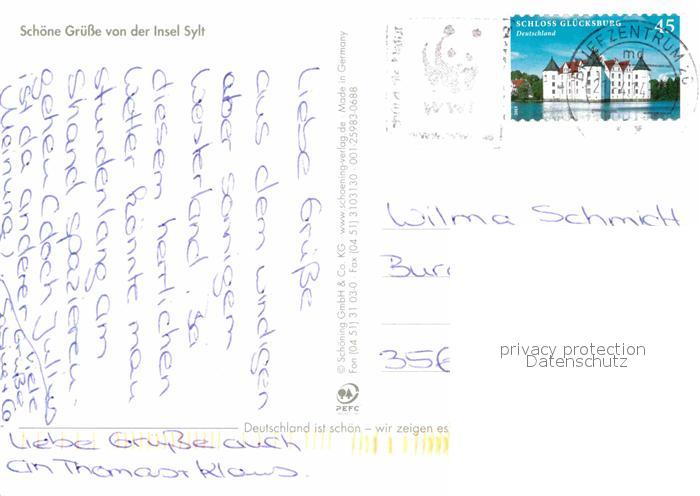 Schöne Grüße von der Insel Sylt
SCHLOSS GLÜCKSBURG
45
Deutschland
BRIEFZENTRUM
md
WWF
Liebe Grüße
aus dem windigen
aber sonnigem
Westerland. Bei
diesem herrlichen
Wetter könnte man
stundenlang am
Strand spazieren
gehen (doch Julius
ist da anderer
Meinung)
Viele
Grüße
© Schöning GmbH & Co. KG · www.schoening-verlag.de · Made in Germany
Fon (04 51) 31 03-0 · Fax (04 51) 3103130 · 001-25983-0688
PEFC
Wilma Schmidt
Bur
356
privacy protection
Datenschutz
Deutschland ist schön – wir zeigen es
Liebe Grüße auch
an Thomas + Klaus.